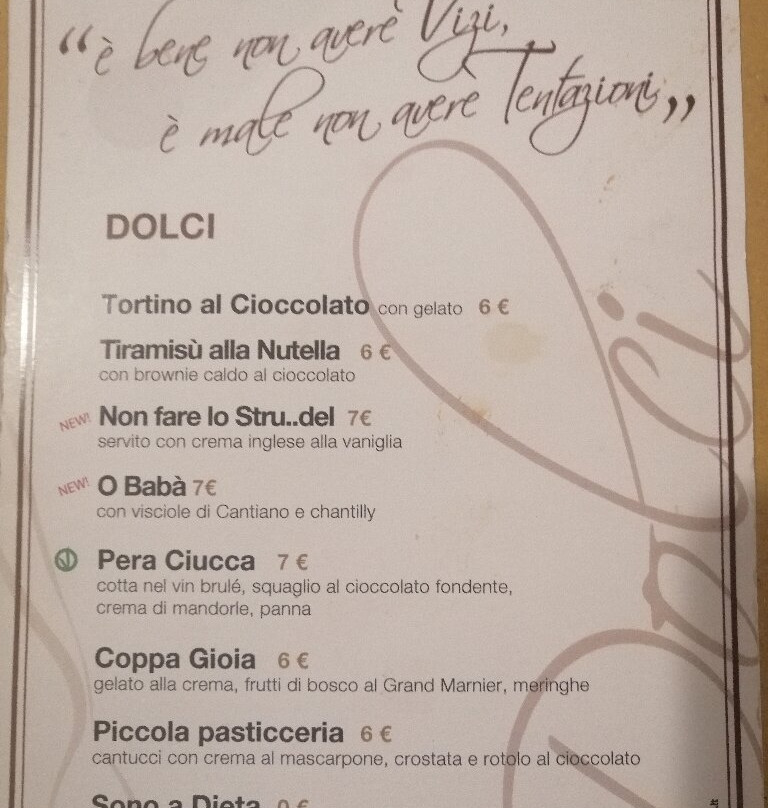 “è bene non avere Vizi,
è male non avere Tentazioni„
DOLCI
Tortino al Cioccolato con gelato 6 €
Tiramisù alla Nutella 6 €
con brownie caldo al cioccolato
NEW! Non fare lo Stru..del 7€
servito con crema inglese alla vaniglia
NEW! O Babà 7€
con visciole di Cantiano e chantilly
Pera Ciucca 7 €
cotta nel vin brulé, squaglio al cioccolato fondente,
crema di mandorle, panna
Coppa Gioia 6 €
gelato alla crema, frutti di bosco al Grand Marnier, meringhe
Piccola pasticceria 6 €
cantucci con crema al mascarpone, crostata e rotolo al cioccolato
Sono a Dieta 0 €
Dolci